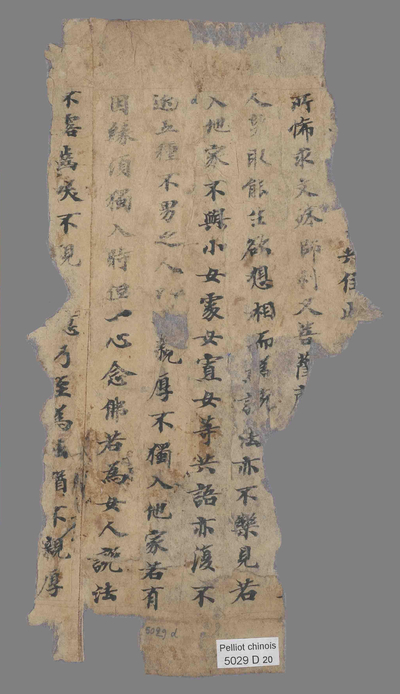 共住
所悕求文殊師利又菩薩摩
人身取能生欲想相而為說法亦不樂見若
入他家不與小女處女寡女等共語亦復不
近五種不男之人以親厚不獨入他家若有
因緣須獨入時但一心念佛若為女人說法
不露齒笑不現臆乃至為法猶不親厚
5029 d
Pelliot chinois
5029 D 20